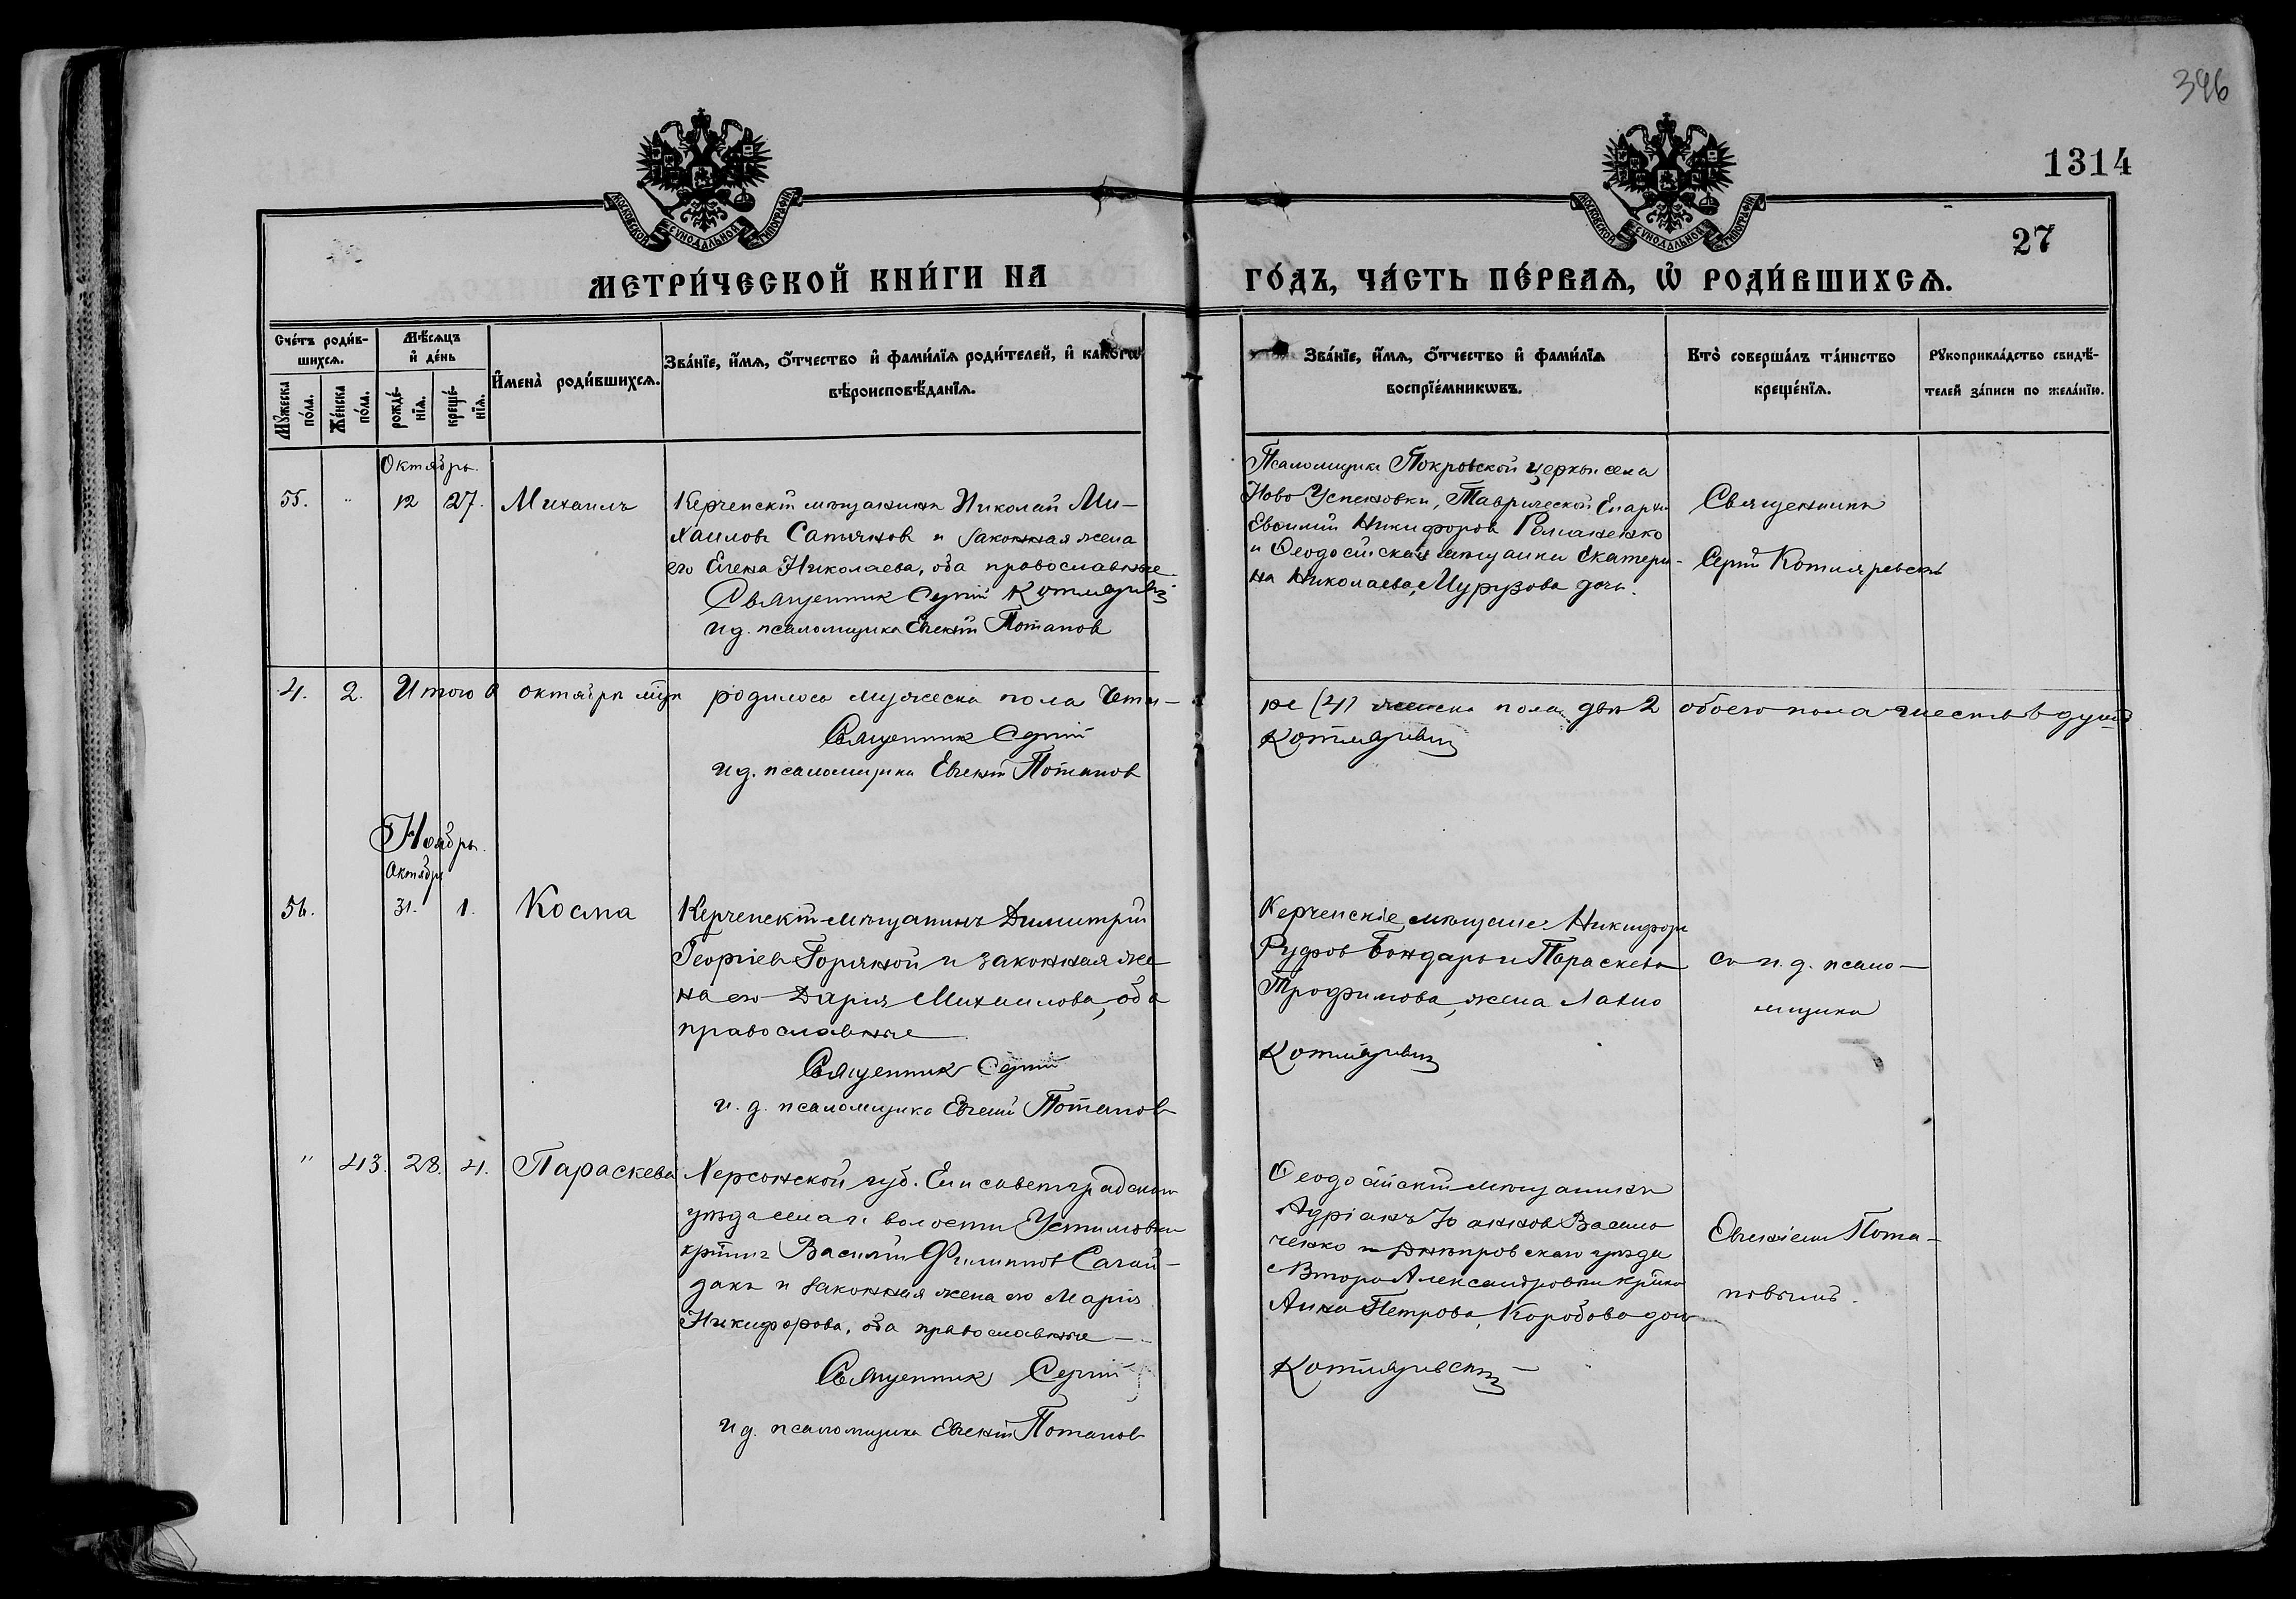 396
1314
27
МОСКОВСКОЙ СѴНОДАЛЬНОЙ ТИПОГРАФІИ
МОСКОВСКОЙ СѴНОДАЛЬНОЙ ТИПОГРАФІИ
МЕТРИ́ЧЕСКОЙ КНИ́ГИ НА
ГО́ДЪ, ЧА́СТЬ ПЕ́РВАѦ, Ѡ҆ РОДИ́ВШИХСѦ.
Сче́тъ роди́в-
шихсѧ.
Мꙋ́жеска
по́ла.
Же́нска
по́ла.
Мѣ́сѧцъ
и҆ де́нь
рожде́-
нїѧ.
креще́-
нїѧ.
И҆мена̀ роди́вшихсѧ.
Зва́нїе, и҆́мѧ, ѻ҆́тчество и҆ фами́лїѧ роди́телей, и҆ како́гѡ
вѣроисповѣ́данїѧ.
Зва́нїе, и҆́мѧ, ѻ҆́тчество и҆ фами́лїѧ
воспрїе́мникѡвъ.
Кто̀ соверша́лъ та́инство
креще́нїѧ.
Рꙋкоприкла́дство свидѣ́-
телей за́писи по жела́нїю.
Октябрь.
55. " 12 27. Михаилъ
Керченскій мѣщанинъ Николай Ми-
хаиловъ и законная жена
его Елена Николаева, оба православные
Священник Сергій Котляревскій
и д. псаломщика Евгеній Потапов
Псаломщикъ Покровской церкви села
Ново Успеновки, Таврической Епархіи
Евфимій Никифоров Романенко
и Ѳеодосійская мѣщанка Екатери-
на Николаева, дочь.
Священникъ
Сергій Котляревскій
4. 2. Итого в октябрѣ мѣсц родилось мужеска пола четы-
ре (4) женска пола двѣ 2 обоего пола шесть 6 душъ
Священник Сергій
Котляревскій
и д. псаломщика Евгеній Потапов
Ноябрь.
Октября
56. 31. 1. Косма
Керченскій мѣщанинъ Димитрій
Георгіев Горяной и законная же
на его Дарія Михаилова, оба
православные
Священник Сергій
и. д. псаломщика Евгеній Потапов
Керченскіе мѣщане: Никифоръ
Бондарь и Параскева
Трофимова, жена
Котляревскій
съ и. д. псало-
мщика
" 43. 28. 4. Параскева
Херсонской губ. Елисаветградскаго
уѣзда села и волости Устиновки
Василій Филиппов Сагай-
дакъ и законная жена его Марія
Никифорова, оба православные
Священник Сергій
и д. псаломщика Евгеній Потапов
Ѳеодосійскій мѣщанинъ
Адріанъ Іоаннов Василь
ченко и Днѣпровскаго уѣзда
Второ Александровки
Анна Петрова, Коробова дочь
Котляревскій
Евгеніем Пота-
повымъ.